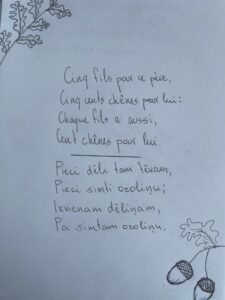 Cinq fils pour ce père,
Cinq cents chênes pour lui:
Chaque fils a aussi,
Cent chênes pour lui.
Pieci dēli tam tēvam,
Pieci simti ozoliņu;
Ikvienam dēliņam,
Pa simtam ozoliņu.